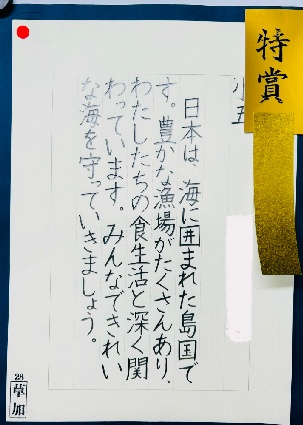 特賞
小五
日本は、海に囲まれた島国で
す。豊かな漁場がたくさんあり、
わたしたちの食生活と深く関
わっています。みんなできれい
な海を守っていきましょう。
28
草加